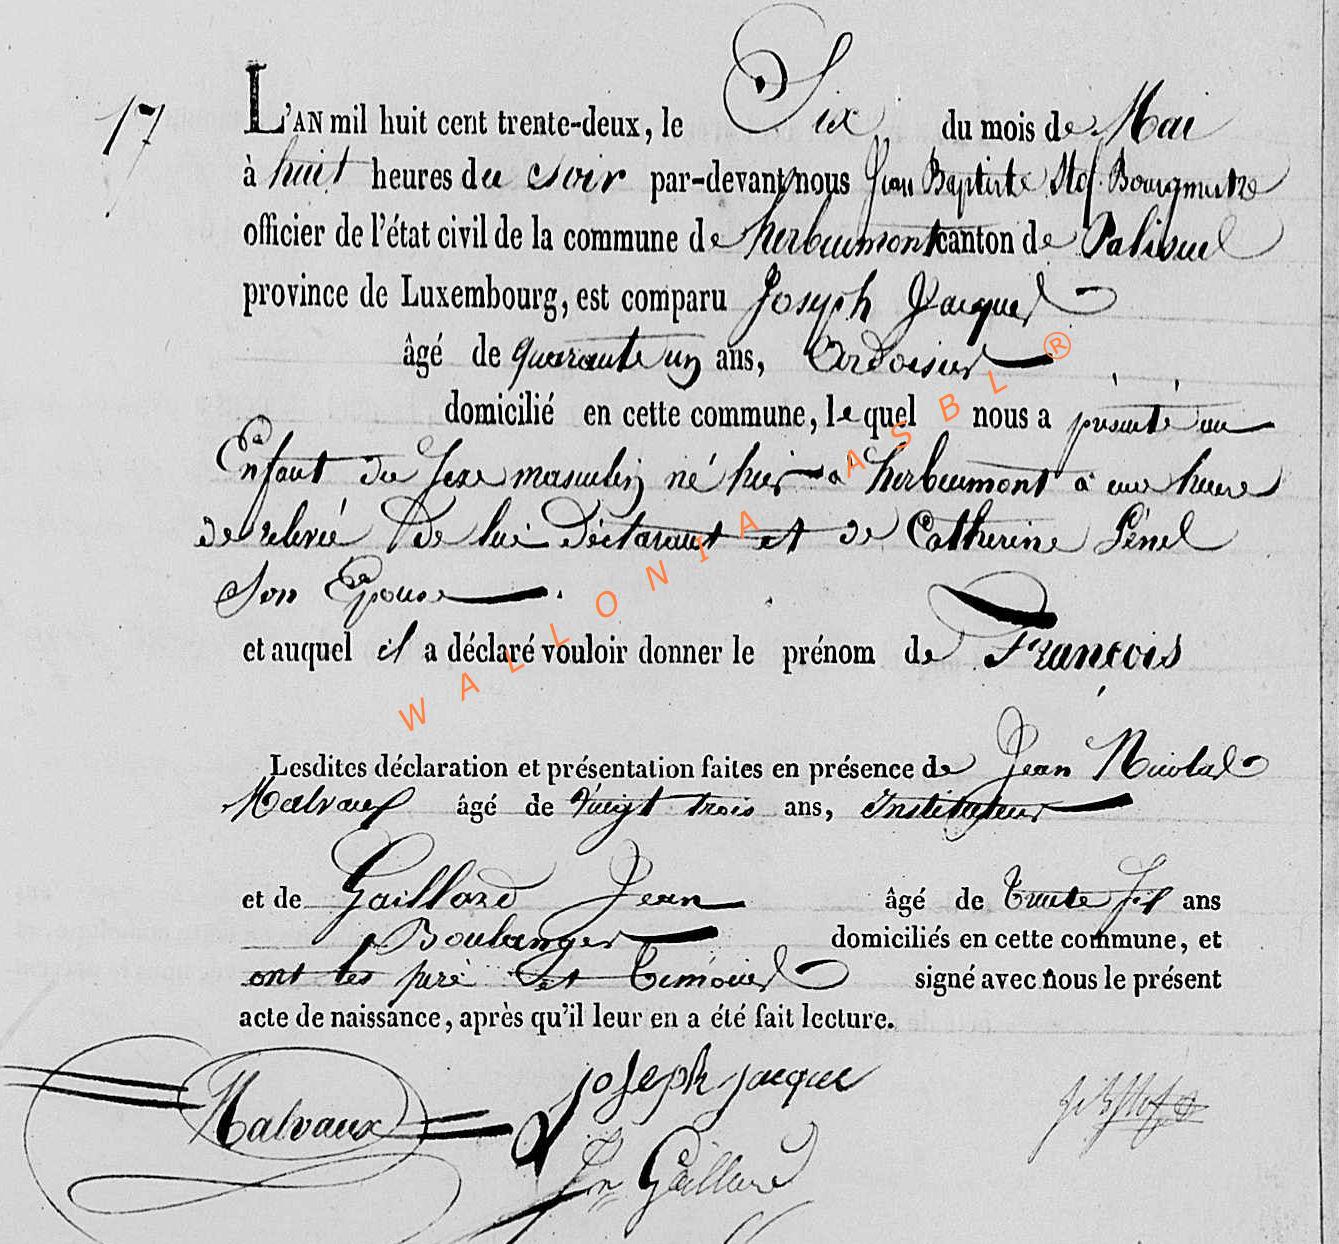 17
L'AN mil huit cent trente-deux, le Six du mois de Mai
à huit heures du soir par-devant nous Jean Baptiste Bourgmestre
officier de l'état civil de la commune de herbeumont canton de Paliseul
province de Luxembourg, est comparu Joseph Jacques
âgé de quarante un ans, Ardoisier
domicilié en cette commune, lequel nous a présenté un
Enfant du Sexe masculin né hier à herbeumont à une heure
de relevée De lui Déclarant et de Catherine Pénel
Son Epouse
et auquel il a déclaré vouloir donner le prénom de François
Lesdites déclaration et présentation faites en présence de Jean Nicolas
Malvaux âgé de vingt trois ans, Instituteur
et de Gaillard Jean âgé de Trente Six ans
Boulanger domiciliés en cette commune, et
ont les père et Temoins signé avec nous le présent
acte de naissance, après qu'il leur en a été fait lecture.
joseph jacques
Malvaux
Jn Gaillard
WALLONIA ASBL ®